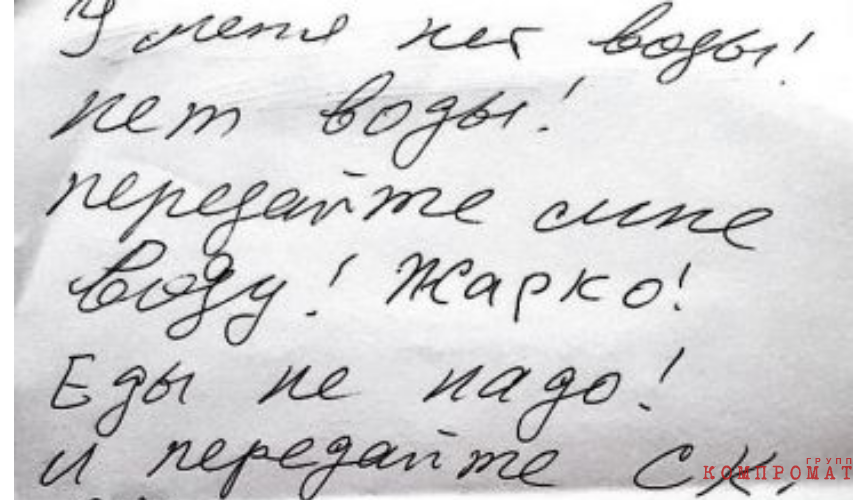 У меня нет воды!
нет воды!
передайте мне
воду! Жарко!
Еды не надо!
и передайте СК,
ГРУПП
КОМПРОМАТ